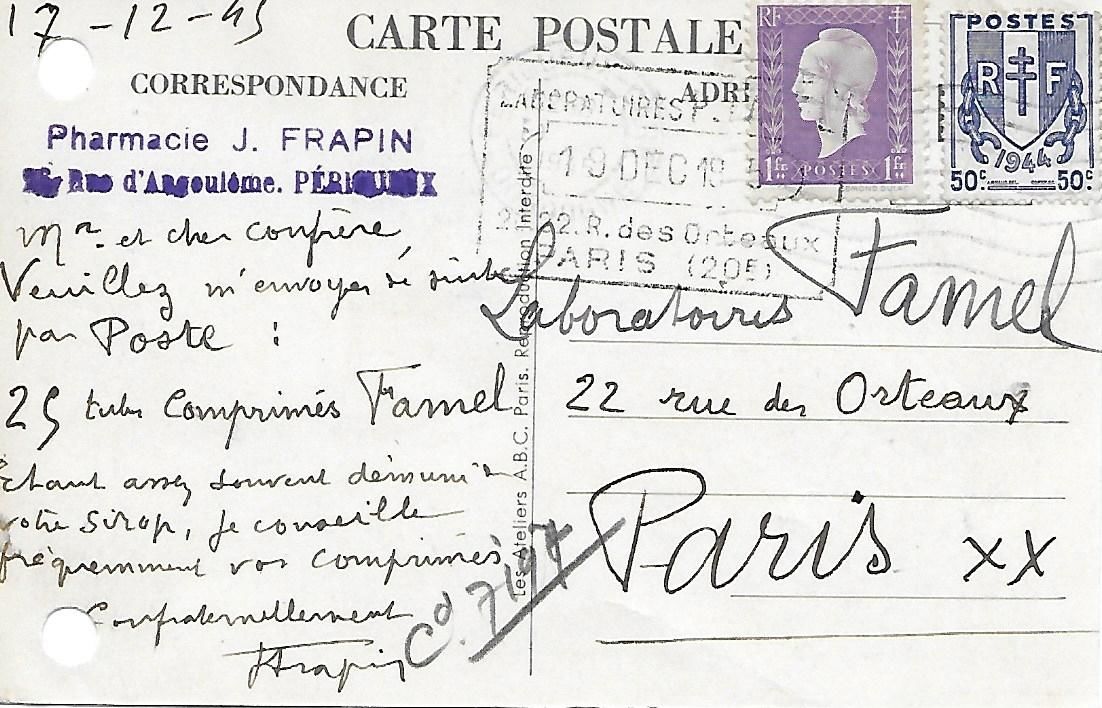 17-12-45
CARTE POSTALE
CORRESPONDANCE
Pharmacie J. FRAPIN
Rue d'Angoulême. PÉRIGUEUX
Mr. et cher confrère,
Veuillez m'envoyer de suite
par Poste :
25 tubes Comprimés Famel
étant assez souvent démuni de
votre Sirop, je conseille
fréquemment vos comprimés
Confraternellement
JFrapin
Cd. 7197
Les Ateliers A.B.C. Paris. Reproduction Interdite
ADR
LABORATOIRES
19 DEC 19 5
22. R. des Orteaux
PARIS (20E)
RF
1fr POSTES 1fr
POSTES
R F
1944
50c 50c
Laboratoires Famel
22 rue des Orteaux
Paris XX